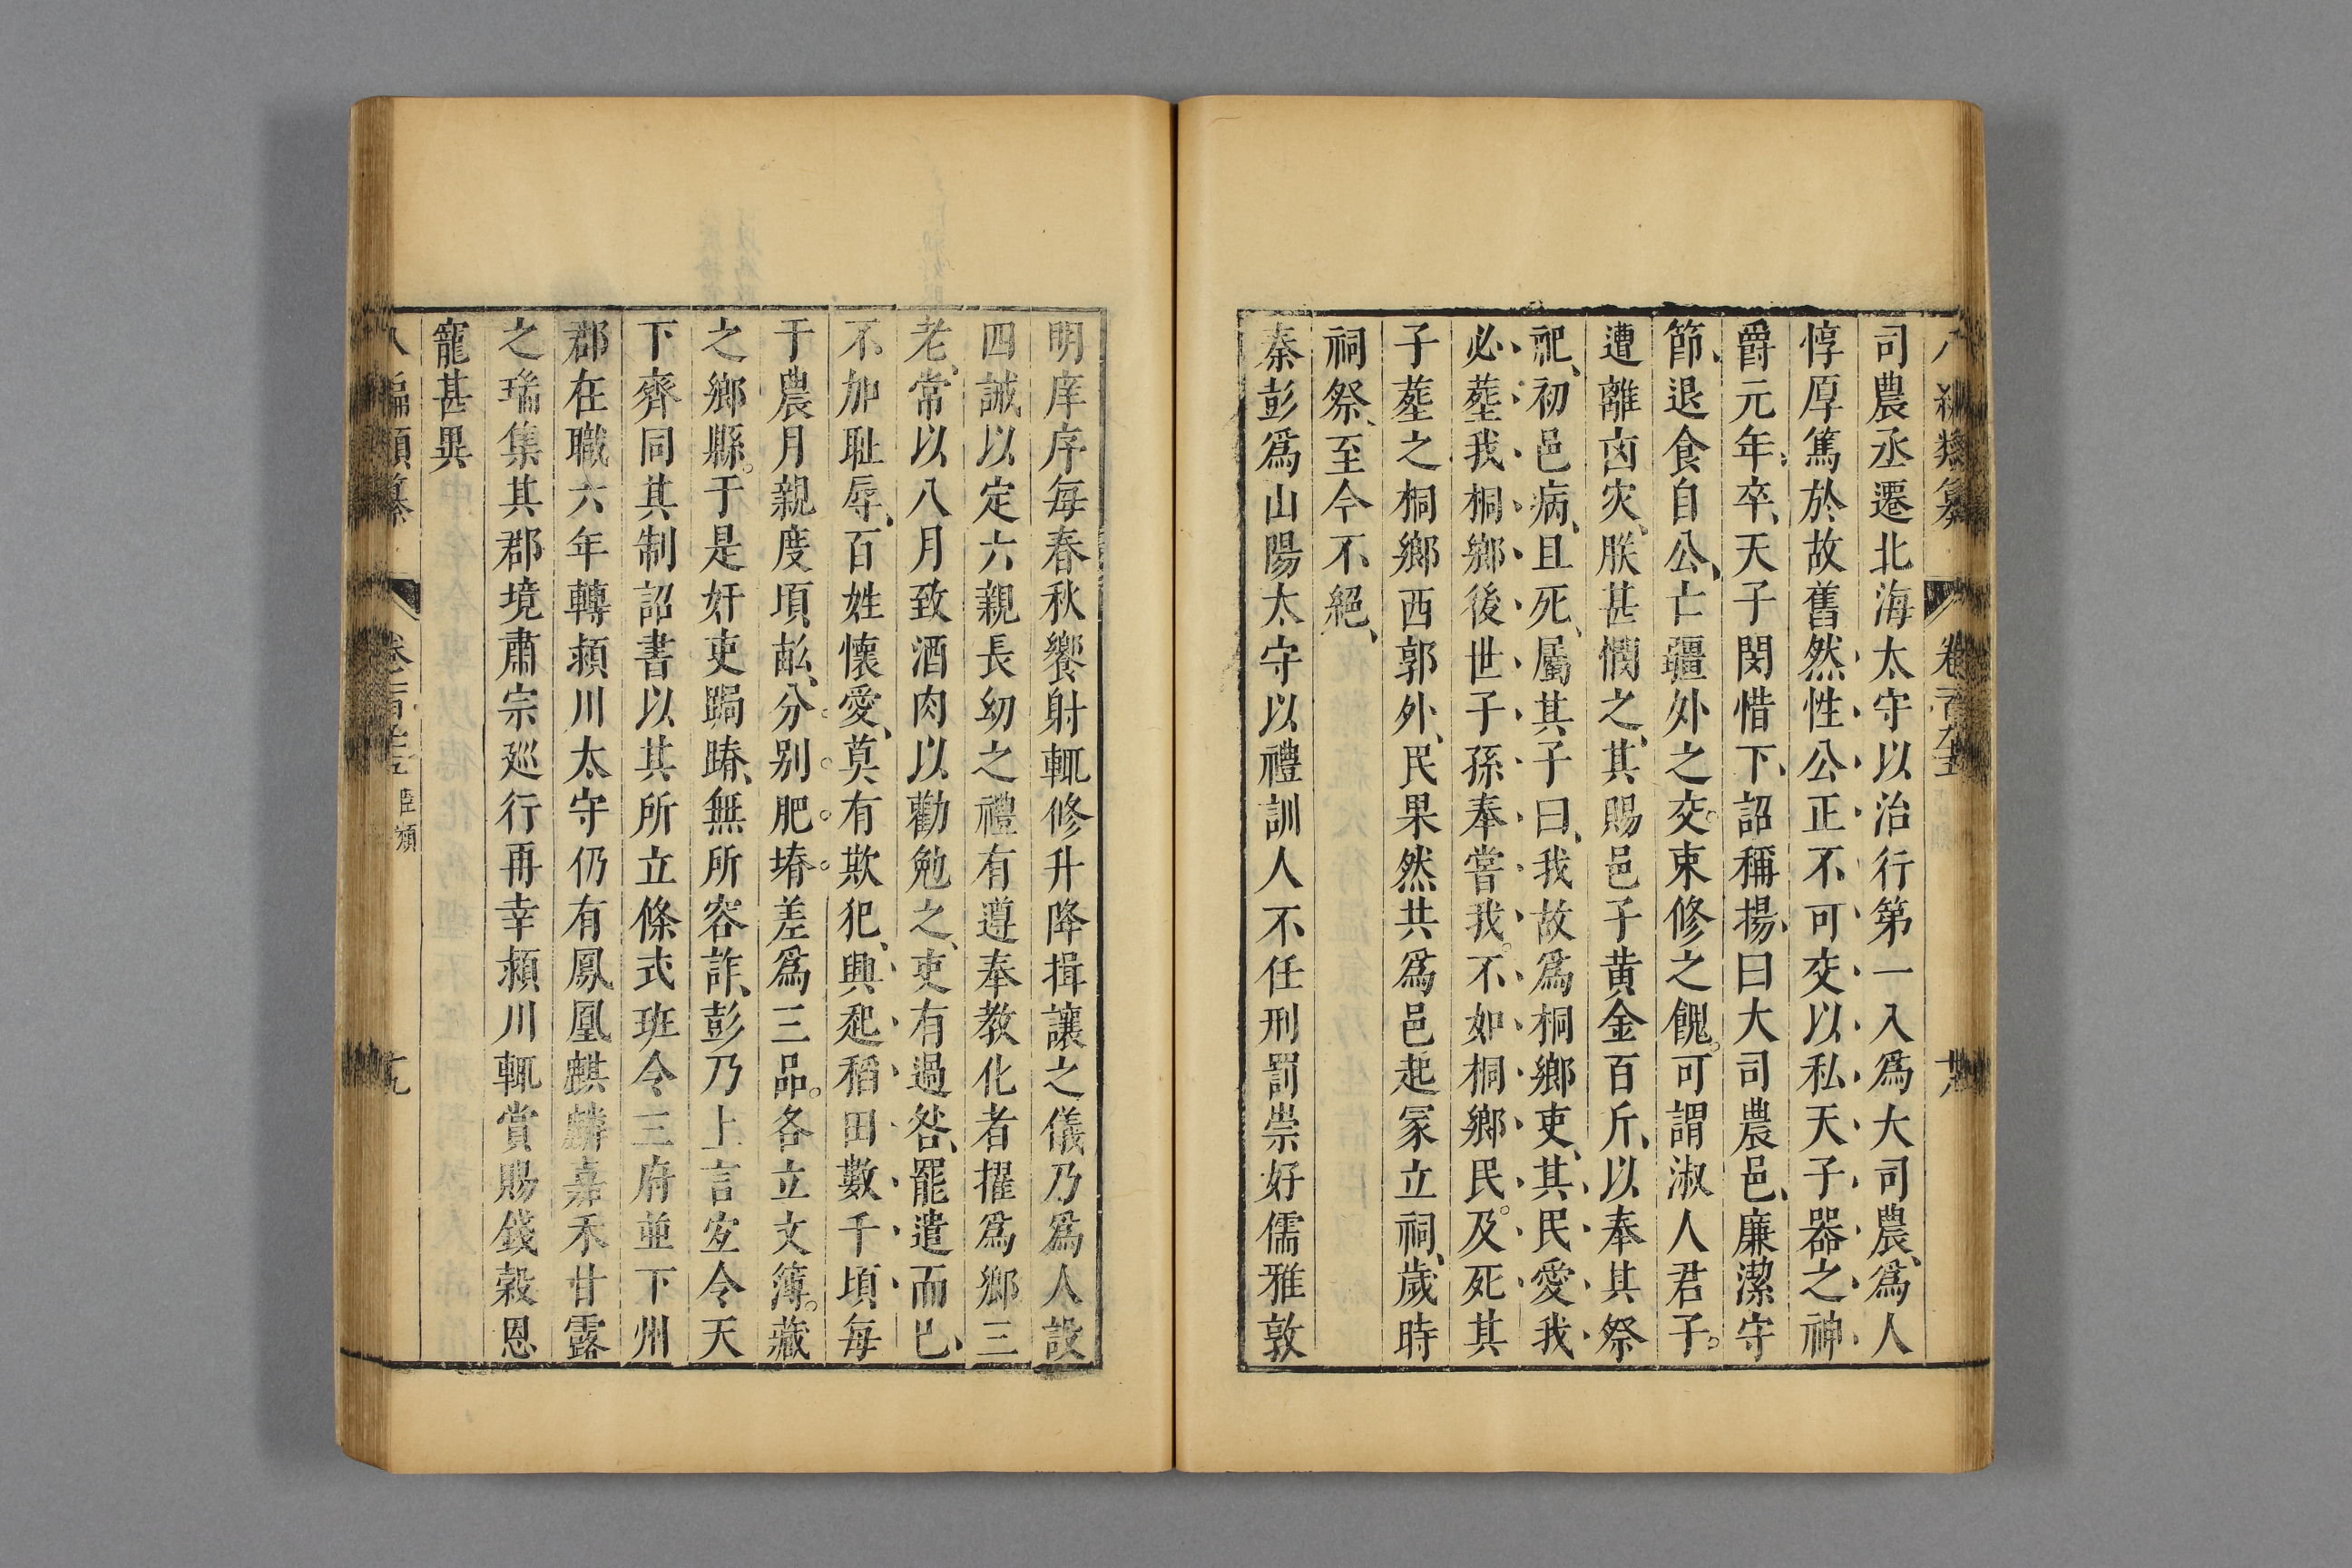 司農丞遷北海太守以治行第一入爲大司農、爲人
惇厚篤於故舊然性公正不可交以私天子器之神
爵元年卒、天子閔惜下、詔稱揚曰大司農邑、廉潔守
節、退食自公、亡疆外之交。束修之餽。可謂淑人君子。
遭離凶灾、朕甚憫之、其賜邑子黄金百斤、以奉其祭
祀、初邑病、且死、屬其子曰、我故爲桐鄉吏、其民愛我
必塟我桐鄉後世子孫奉嘗我。不如桐鄉民。及死其
子塟之桐鄉西郭外、民果然共爲邑起冢立祠、歲時
祠祭、至今不絕、
秦彭爲山陽太守以禮訓人不任刑罰崇好儒雅敦
明庠序每春秋饗射輒修升降揖讓之儀乃爲人設
四誡以定六親長幼之禮有遵奉教化者擢爲鄉三
老、常以八月致酒肉以勸勉之、吏有過咎、罷遣而已、
不加耻辱、百姓懷愛、莫有欺犯、興起稻田數千頃每
于農月親度頃畝、分別肥塉差爲三品。各立文簿。藏
之鄉縣。于是奸吏跼蹐、無所容詐、彭乃上言宜令天
下齊同其制詔書以其所立條式班令三府並下州
郡在職六年轉潁川太守仍有鳳凰麒麟嘉禾甘露
之瑞集其郡境肅宗廵行再幸潁川輒賞賜錢穀恩
寵甚異
八編類纂 卷一百 臣類 十九